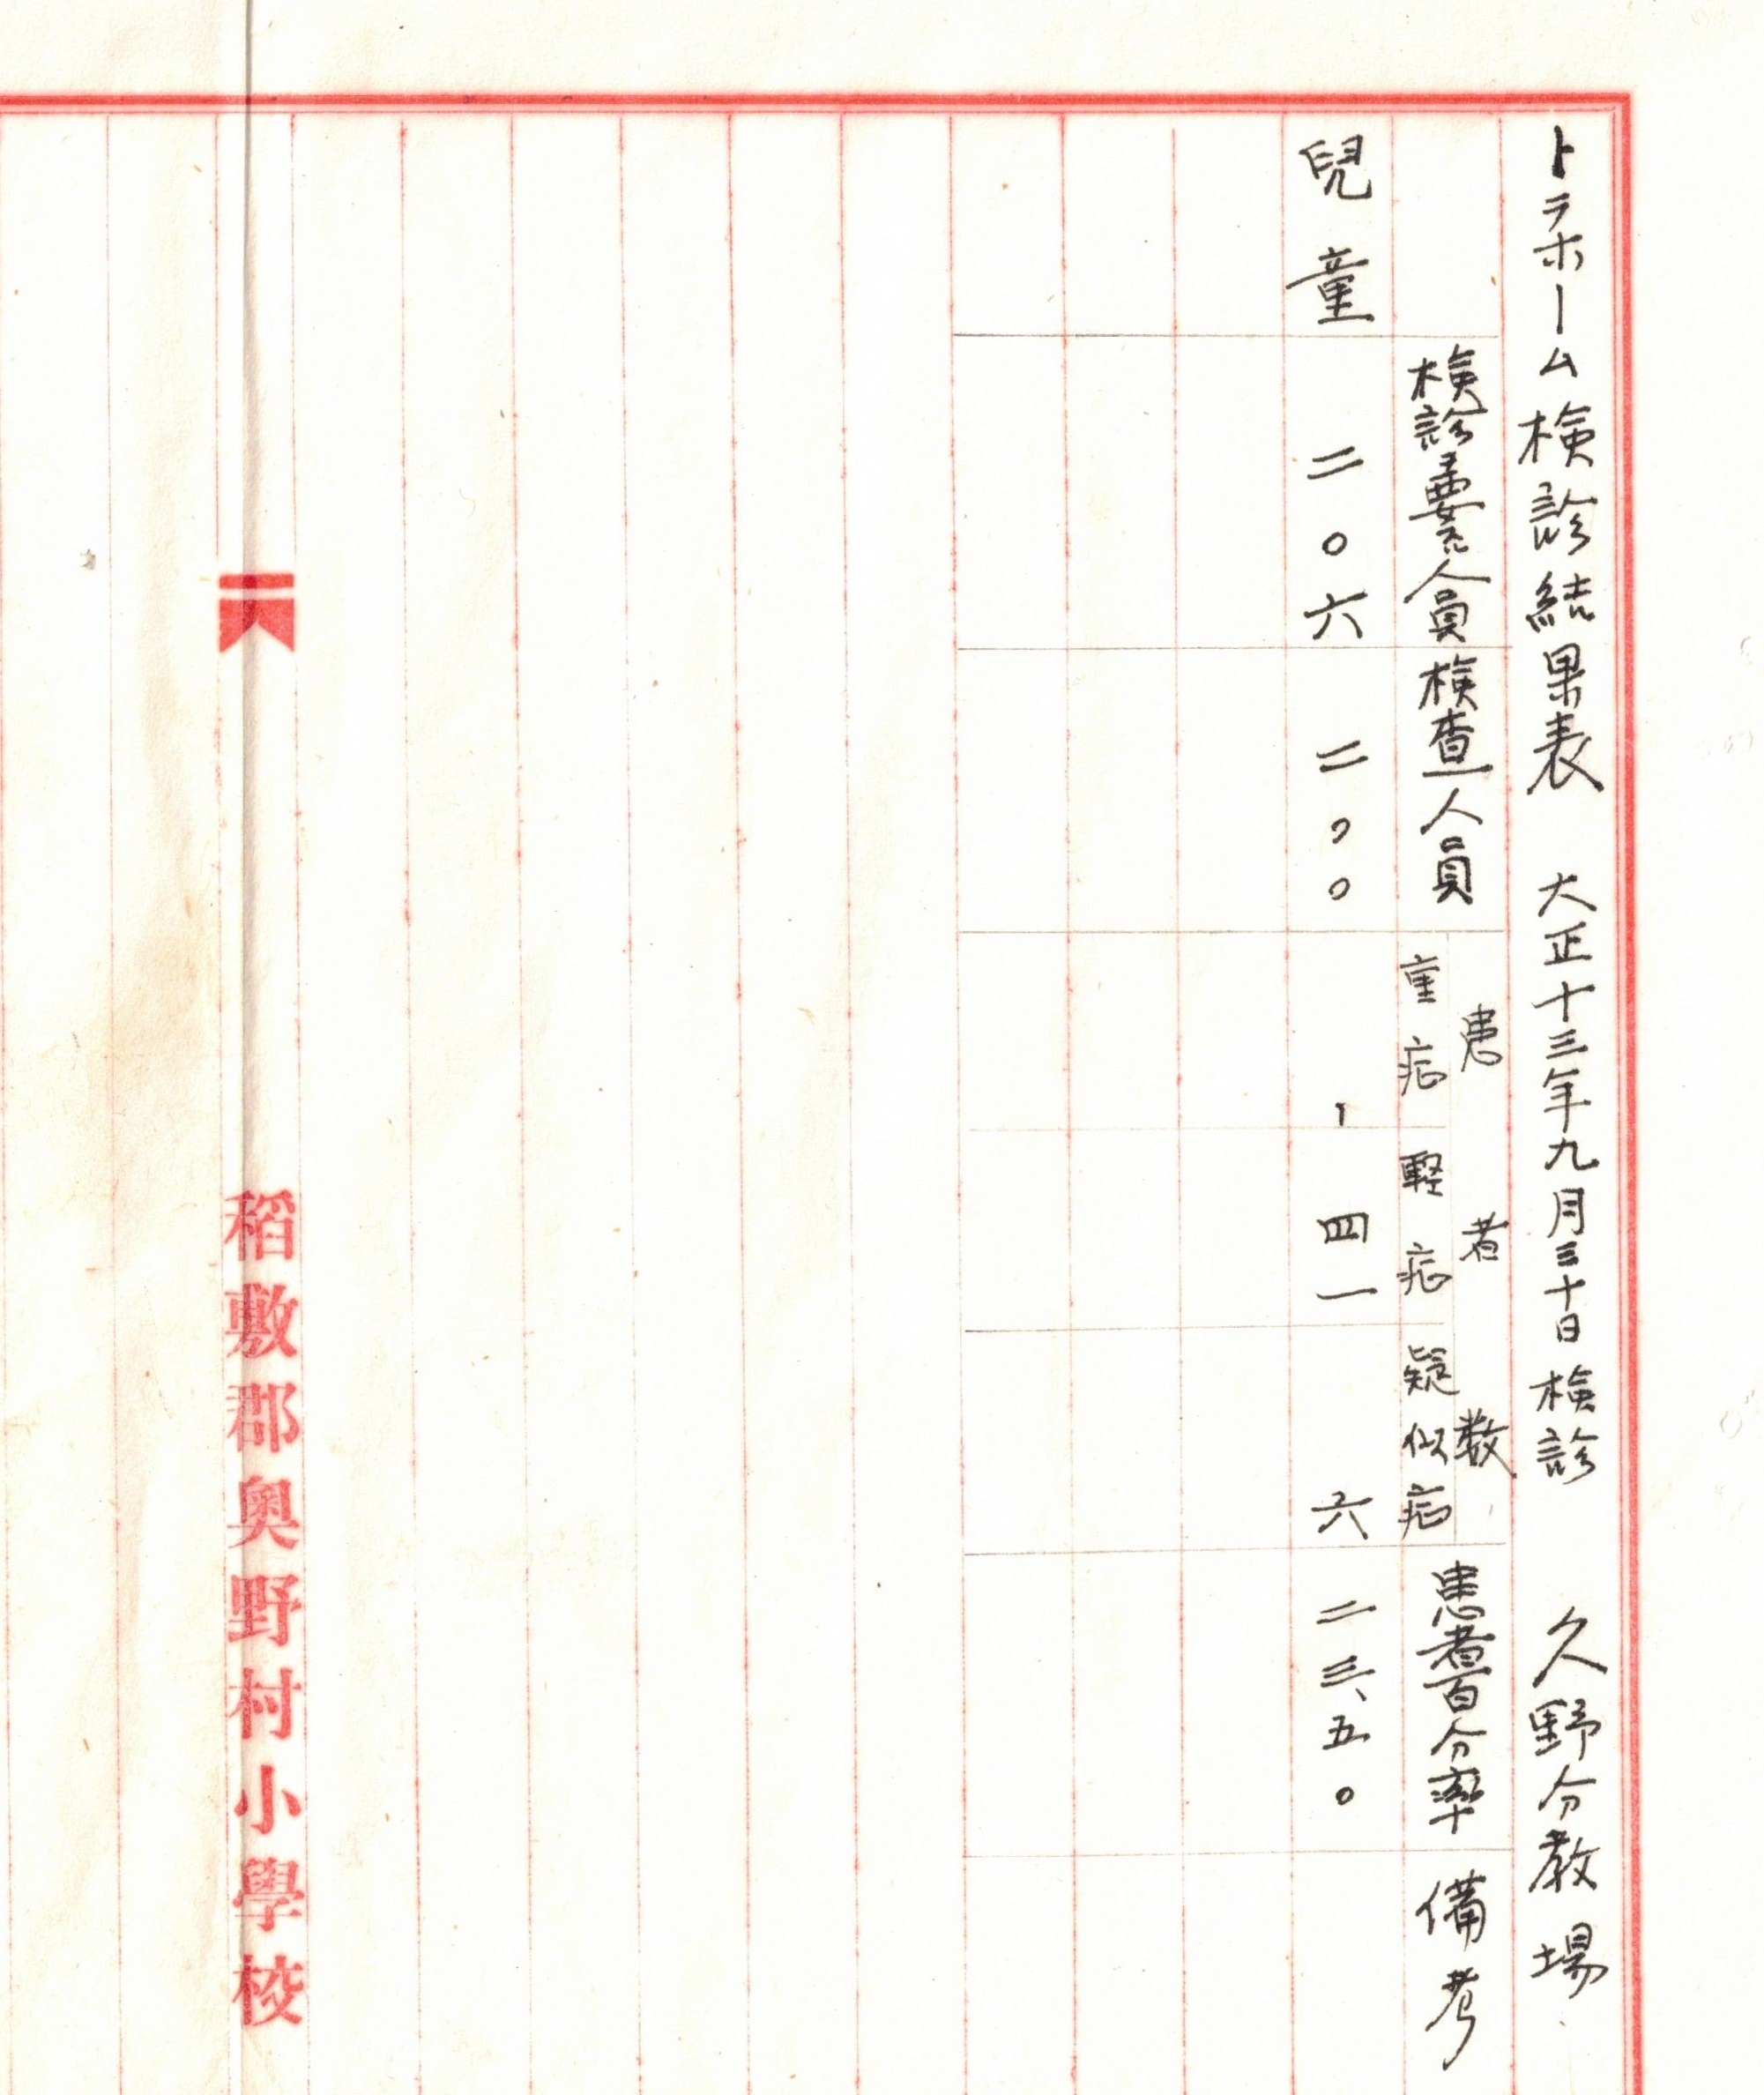 トラホーム検診結果表 大正十三年九月三十日検診 久野分教場
検診要人員 検査人員 患者数 患者百分率 備考
重症 軽症 疑似症
兒童 二〇六 二〇〇 、 四一 六 二三、五〇
稻敷郡奥野村小學校